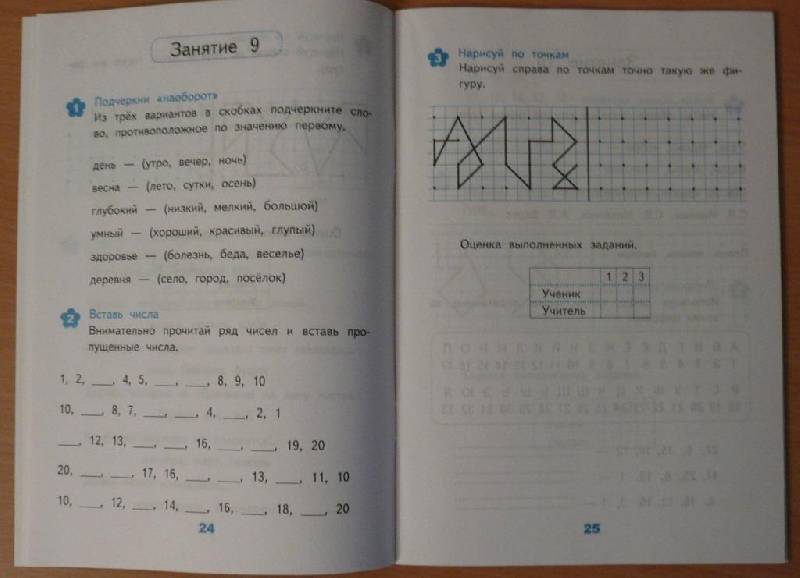 Занятие 9
1
Подчеркни «наоборот»
Из трёх вариантов в скобках подчеркните сло-
во, противоположное по значению первому.
день — (утро, вечер, ночь)
весна — (лето, сутки, осень)
глубокий — (низкий, мелкий, большой)
умный — (хороший, красивый, глупый)
здоровье — (болезнь, беда, веселье)
деревня — (село, город, посёлок)
2
Вставь числа
Внимательно прочитай ряд чисел и вставь про-
пущенные числа.
1, 2, ___, 4, 5, ___, ___, 8, 9, 10
10, ___, 8, 7, ___, ___, 4, ___, 2, 1
___, 12, 13, ___, ___, 16, ___, ___, 19, 20
20, ___, ___, 17, 16, ___, ___, 13, ___, 11, 10
10, ___, 12, ___, 14, ___, 16, ___, 18, ___, 20
24
3
Нарисуй по точкам
Нарисуй справа по точкам точно такую же фи-
гуру.
Оценка выполненных заданий.
1 2 3
Ученик
Учитель
25